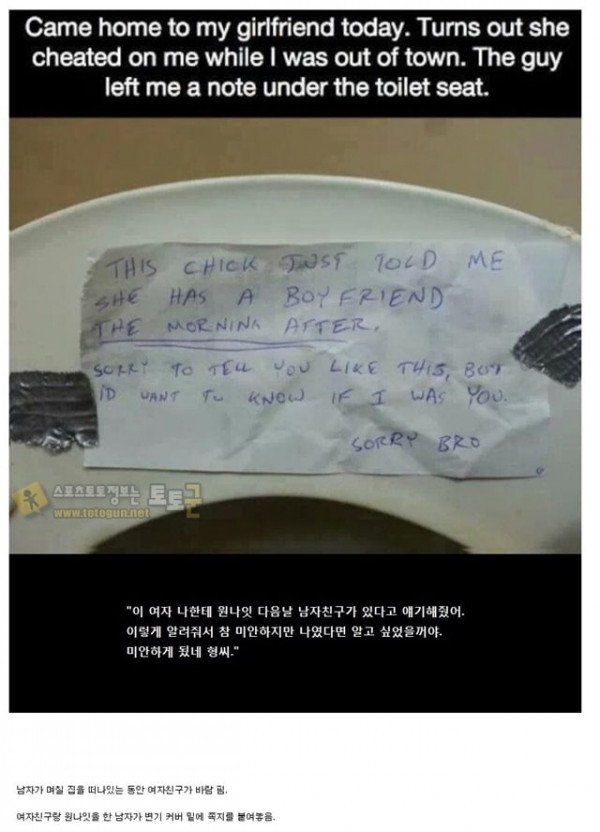 Came home to my girlfriend today. Turns out she
cheated on me while I was out of town. The guy
left me a note under the toilet seat.
THIS CHICK JUST TOLD ME
SHE HAS A BOYFRIEND
THE MORNING AFTER.
SORRY TO TELL YOU LIKE THIS, BUT
I'D WANT TO KNOW IF I WAS YOU.
SORRY BRO
스포츠토토정보는 토토군
www.totogun.net
"이 여자 나한테 원나잇 다음날 남자친구가 있다고 얘기해줬어.
이렇게 알려줘서 참 미안하지만 나였다면 알고 싶었을꺼야.
미안하게 됐네 형씨."
남자가 며칠 집을 떠나있는 동안 여자친구가 바람 핌.
여자친구랑 원나잇을 한 남자가 변기 커버 밑에 쪽지를 붙여놓음.